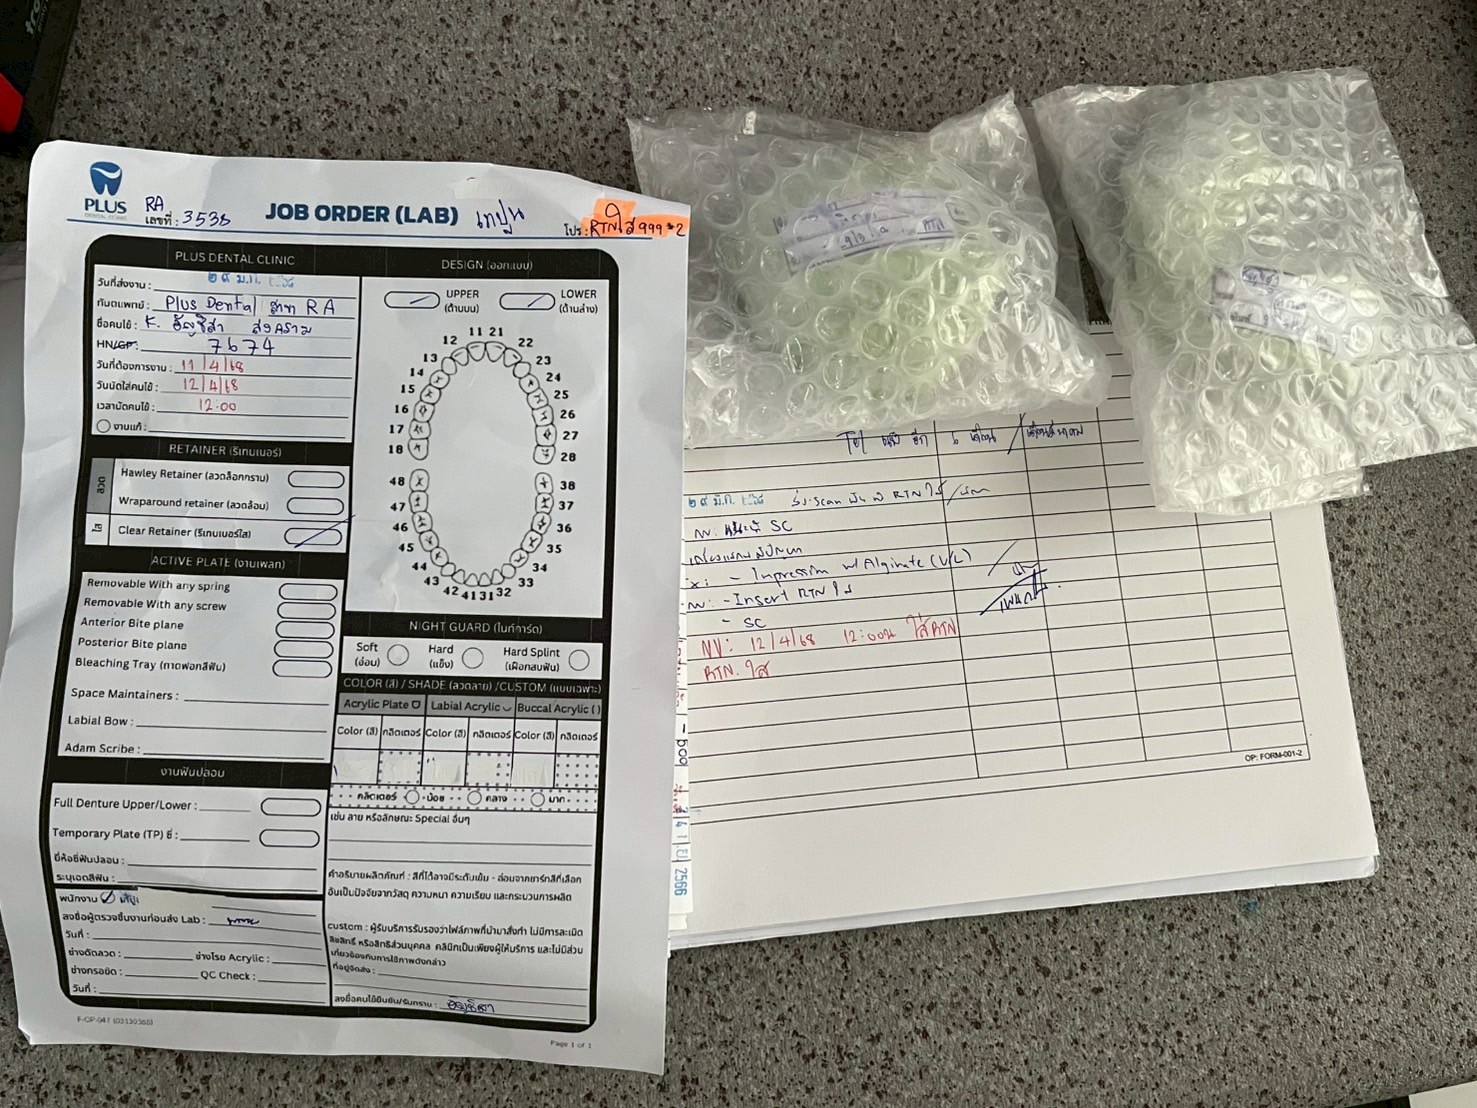 PLUS
DENTAL CLINIC
RA
เลขที่ : 3538
JOB ORDER (LAB)
เทปูน
โปร : RTNใส 999*2
PLUS DENTAL CLINIC
วันที่ส่งงาน : ๒๙ มี.ค.
ทันตแพทย์ : Plus Dental สาขา RA
ชื่อคนไข้ : K. ธัญชิสา สงคราม
HN/GP: 7674
วันที่ต้องการงาน : 11/4/68
วันนัดใส่คนไข้ : 12/4/68
เวลานัดคนไข้ : 12:00
งานแก้ :
RETAINER (รีเทนเนอร์)
ลวด
Hawley Retainer (ลวดล็อกกราม)
Wraparound retainer (ลวดล้อม)
ใส
Clear Retainer (รีเทนเนอร์ใส)
ACTIVE PLATE (งานเพลท)
Removable With any spring
Removable With any screw
Anterior Bite plane
Posterior Bite plane
Bleaching Tray (ถาดฟอกสีฟัน)
Space Maintainers :
Labial Bow :
Adam Scribe :
งานฟันปลอม
Full Denture Upper/Lower :
Temporary Plate (TP) ซี่ :
ยี่ห้อซี่ฟันปลอม :
ระบุเฉดสีฟัน :
พนักงาน
ลงชื่อผู้ตรวจชิ้นงานก่อนส่ง Lab :
วันที่ :
ช่างดัดลวด :
ช่างโรย Acrylic :
ช่างกรอขัด :
QC Check :
วันที่ :
DESIGN (ออกแบบ)
UPPER
(ด้านบน)
LOWER
(ด้านล่าง)
11 21
12 22
13 23
14 24
15 25
16 26
17 27
18 28
48 38
47 37
46 36
45 35
44 34
43 33
42 41 31 32
NIGHT GUARD (ไนท์การ์ด)
Soft
(อ่อน)
Hard
(แข็ง)
Hard Splint
(เฝือกสบฟัน)
COLOR (สี) / SHADE (ลวดลาย) /CUSTOM (แบบเฉพาะ)
Acrylic Plate
Labial Acrylic
Buccal Acrylic ( )
Color (สี) กลิตเตอร์ Color (สี) กลิตเตอร์ Color (สี) กลิตเตอร์
กลิตเตอร์ น้อย กลาง มาก
เช่น ลาย หรือลักษณะ Special อื่นๆ
คำอธิบายผลิตภัณฑ์ : สีที่ได้อาจมีระดับเข้ม - อ่อนจากชาร์ทสีที่เลือก
อันเป็นปัจจัยจากวัสดุ ความหนา ความเรียบ และกระบวนการผลิต
custom : ผู้รับบริการรับรองว่าไฟล์ภาพที่นำมาสั่งทำ ไม่มีการละเมิด
ลิขสิทธิ์ หรือสิทธิส่วนบุคคล คลินิกเป็นเพียงผู้ให้บริการ และไม่มีส่วน
เกี่ยวข้องกับการใช้ภาพดังกล่าว
ที่อยู่จัดส่ง :
ลงชื่อคนไข้ยืนยัน/รับทราบ : ธัญชิสา
Page 1 of 1
๒๙ มี.ค.
SC
- Impression w/ Alginate (U/L)
- Insert RTN ใส
- SC
NV: 12/4/68 12:00น ใส่ RTN
RTN. ใส
2566
OP: FORM-001-2